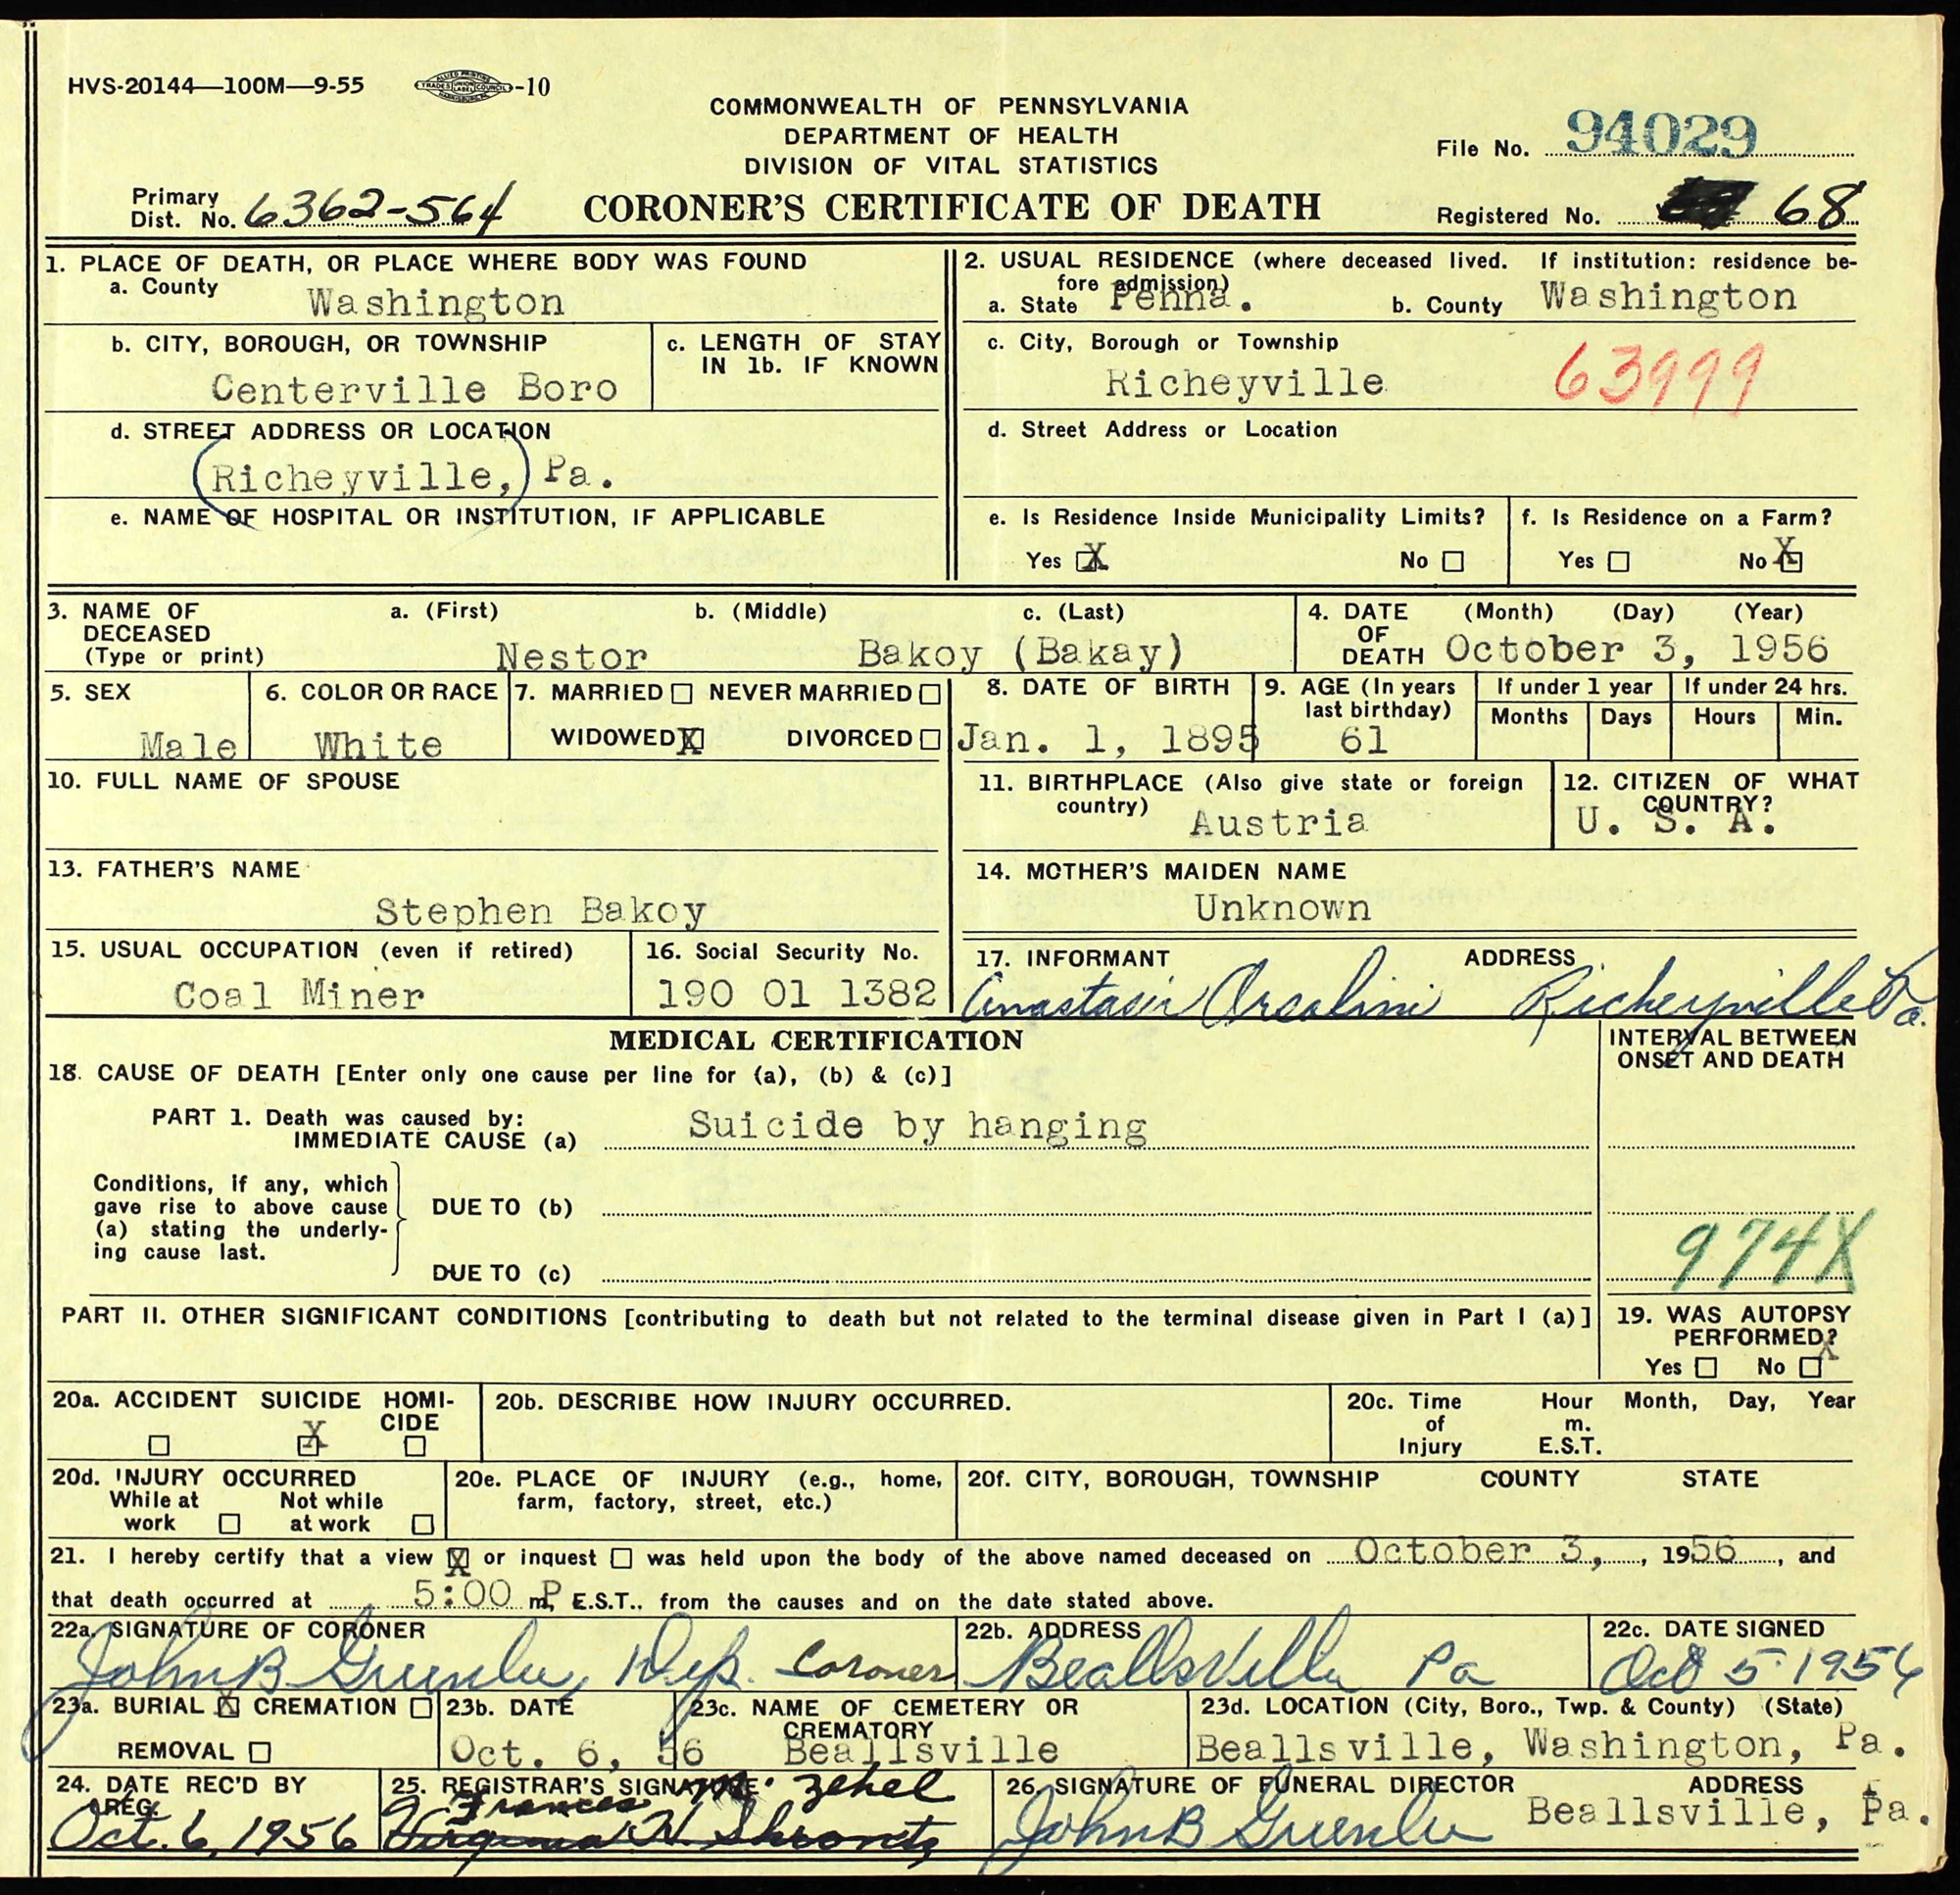 HVS-20144—100M—9-55 -10
COMMONWEALTH OF PENNSYLVANIA
DEPARTMENT OF HEALTH
DIVISION OF VITAL STATISTICS
File No. 94029
Primary
Dist. No. 6362-564
CORONER'S CERTIFICATE OF DEATH
Registered No. 68
1. PLACE OF DEATH, OR PLACE WHERE BODY WAS FOUND
a. County Washington
2. USUAL RESIDENCE (where deceased lived. If institution: residence be-
fore admission)
a. State Penna. b. County Washington
b. CITY, BOROUGH, OR TOWNSHIP
Centerville Boro
c. LENGTH OF STAY
IN 1b. IF KNOWN
c. City, Borough or Township
Richeyville 63999
d. STREET ADDRESS OR LOCATION
(Richeyville,) Pa.
d. Street Address or Location
e. NAME OF HOSPITAL OR INSTITUTION, IF APPLICABLE
e. Is Residence Inside Municipality Limits?
Yes X No
f. Is Residence on a Farm?
Yes No X
3. NAME OF
DECEASED
(Type or print)
a. (First) b. (Middle) c. (Last)
Nestor Bakoy (Bakay)
4. DATE
OF
DEATH
(Month) (Day) (Year)
October 3, 1956
5. SEX
Male
6. COLOR OR RACE
White
7. MARRIED NEVER MARRIED
WIDOWED X DIVORCED
8. DATE OF BIRTH
Jan. 1, 1895
9. AGE (In years
last birthday)
61
If under 1 year
Months Days
If under 24 hrs.
Hours Min.
10. FULL NAME OF SPOUSE
11. BIRTHPLACE (Also give state or foreign
country)
Austria
12. CITIZEN OF WHAT
COUNTRY?
U. S. A.
13. FATHER'S NAME
Stephen Bakoy
14. MOTHER'S MAIDEN NAME
Unknown
15. USUAL OCCUPATION (even if retired)
Coal Miner
16. Social Security No.
190 01 1382
17. INFORMANT ADDRESS
Anastasia Orsolini Richeyville Pa.
MEDICAL CERTIFICATION
INTERVAL BETWEEN
ONSET AND DEATH
18. CAUSE OF DEATH [Enter only one cause per line for (a), (b) & (c)]
PART I. Death was caused by:
IMMEDIATE CAUSE (a) Suicide by hanging
Conditions, if any, which
gave rise to above cause
(a) stating the underly-
ing cause last.
DUE TO (b)
DUE TO (c)
974X
PART II. OTHER SIGNIFICANT CONDITIONS [contributing to death but not related to the terminal disease given in Part I (a)]
19. WAS AUTOPSY
PERFORMED?
Yes No X
20a. ACCIDENT SUICIDE HOMI-
CIDE
X
20b. DESCRIBE HOW INJURY OCCURRED.
20c. Time
of
Injury
Hour
m.
E.S.T.
Month, Day, Year
20d. INJURY OCCURRED
While at
work
Not while
at work
20e. PLACE OF INJURY (e.g., home,
farm, factory, street, etc.)
20f. CITY, BOROUGH, TOWNSHIP COUNTY STATE
21. I hereby certify that a view X or inquest was held upon the body of the above named deceased on October 3, , 1956, and
that death occurred at 5:00 P m, E.S.T., from the causes and on the date stated above.
22a. SIGNATURE OF CORONER
John B Greenlee, Dep. Coroner
22b. ADDRESS
Beallsville Pa
22c. DATE SIGNED
Oct 5 1956
23a. BURIAL X CREMATION
REMOVAL
23b. DATE
Oct. 6, 56
23c. NAME OF CEMETERY OR
CREMATORY
Beallsville
23d. LOCATION (City, Boro., Twp. & County) (State)
Beallsville, Washington, Pa.
24. DATE REC'D BY
REG.
Oct. 6, 1956
25. REGISTRAR'S SIGNATURE
Frances M. Zehel
26. SIGNATURE OF FUNERAL DIRECTOR ADDRESS
John B Greenlee Beallsville, Pa.